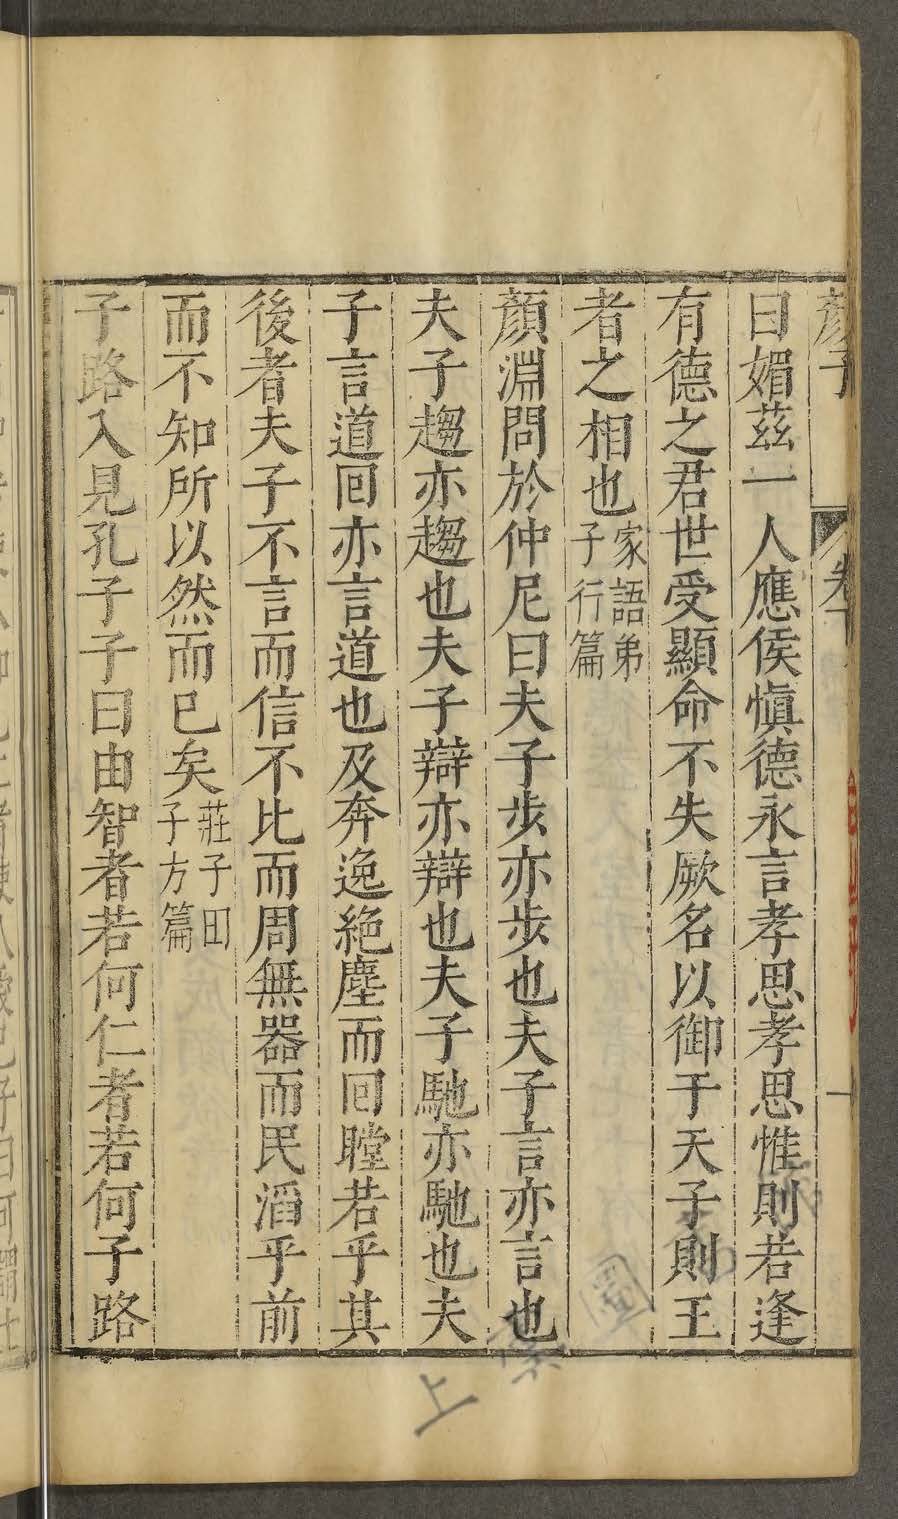 顏子 卷下 一
曰媚茲一人應侯慎德永言孝思孝思惟則若逢
有德之君世受顯命不失厥名以御于天子則王
者之相也家語弟子行篇
顏淵問於仲尼曰夫子步亦步也夫子言亦言也
夫子趨亦趨也夫子辯亦辯也夫子馳亦馳也夫
子言道回亦言道也及奔逸絕塵而回瞠若乎其
後者夫子不言而信不比而周無器而民滔乎前
而不知所以然而已矣莊子田子方篇
子路入見孔子子曰由智者若何仁者若何子路